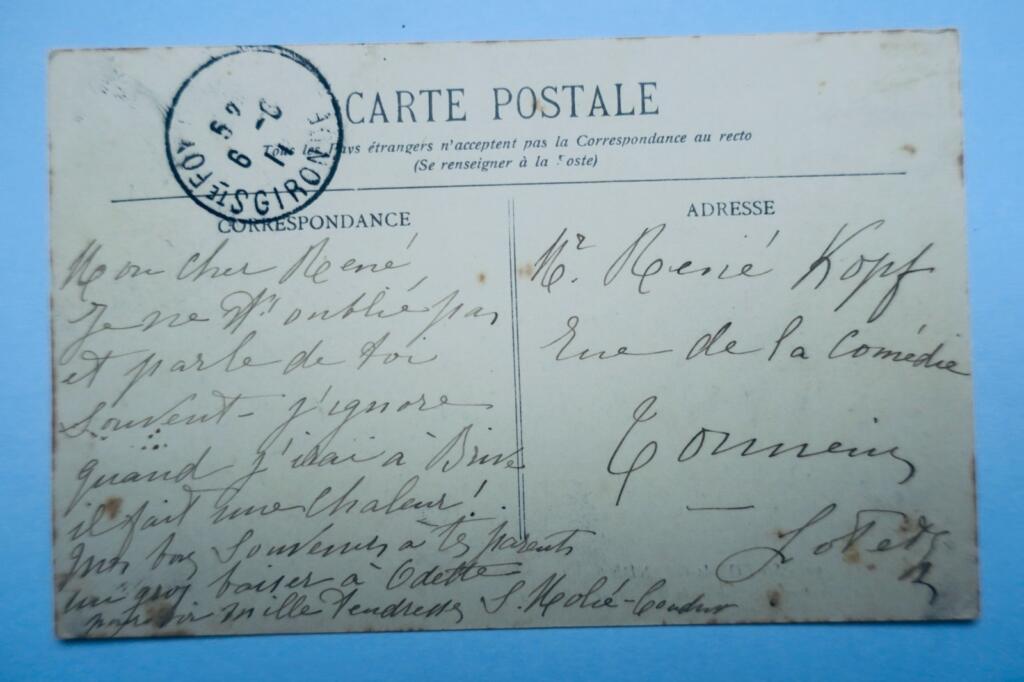 CARTE POSTALE
Tous les Pays étrangers n'acceptent pas la Correspondance au recto
(Se renseigner à la Poste)
STE FOY
GIRONDE
CORRESPONDANCE
Mon cher René
Je ne t'ai oublié pas
et parle de toi
souvent - j'ignore
quand j'irai à Brive
il fait une chaleur!
mes bons souvenirs à tes parents
un gros baiser à Odette
pour toi mille tendresses S. Molié-
ADRESSE
Mr. René Kopf
Rue de la Comédie
Tonneins
Lot et